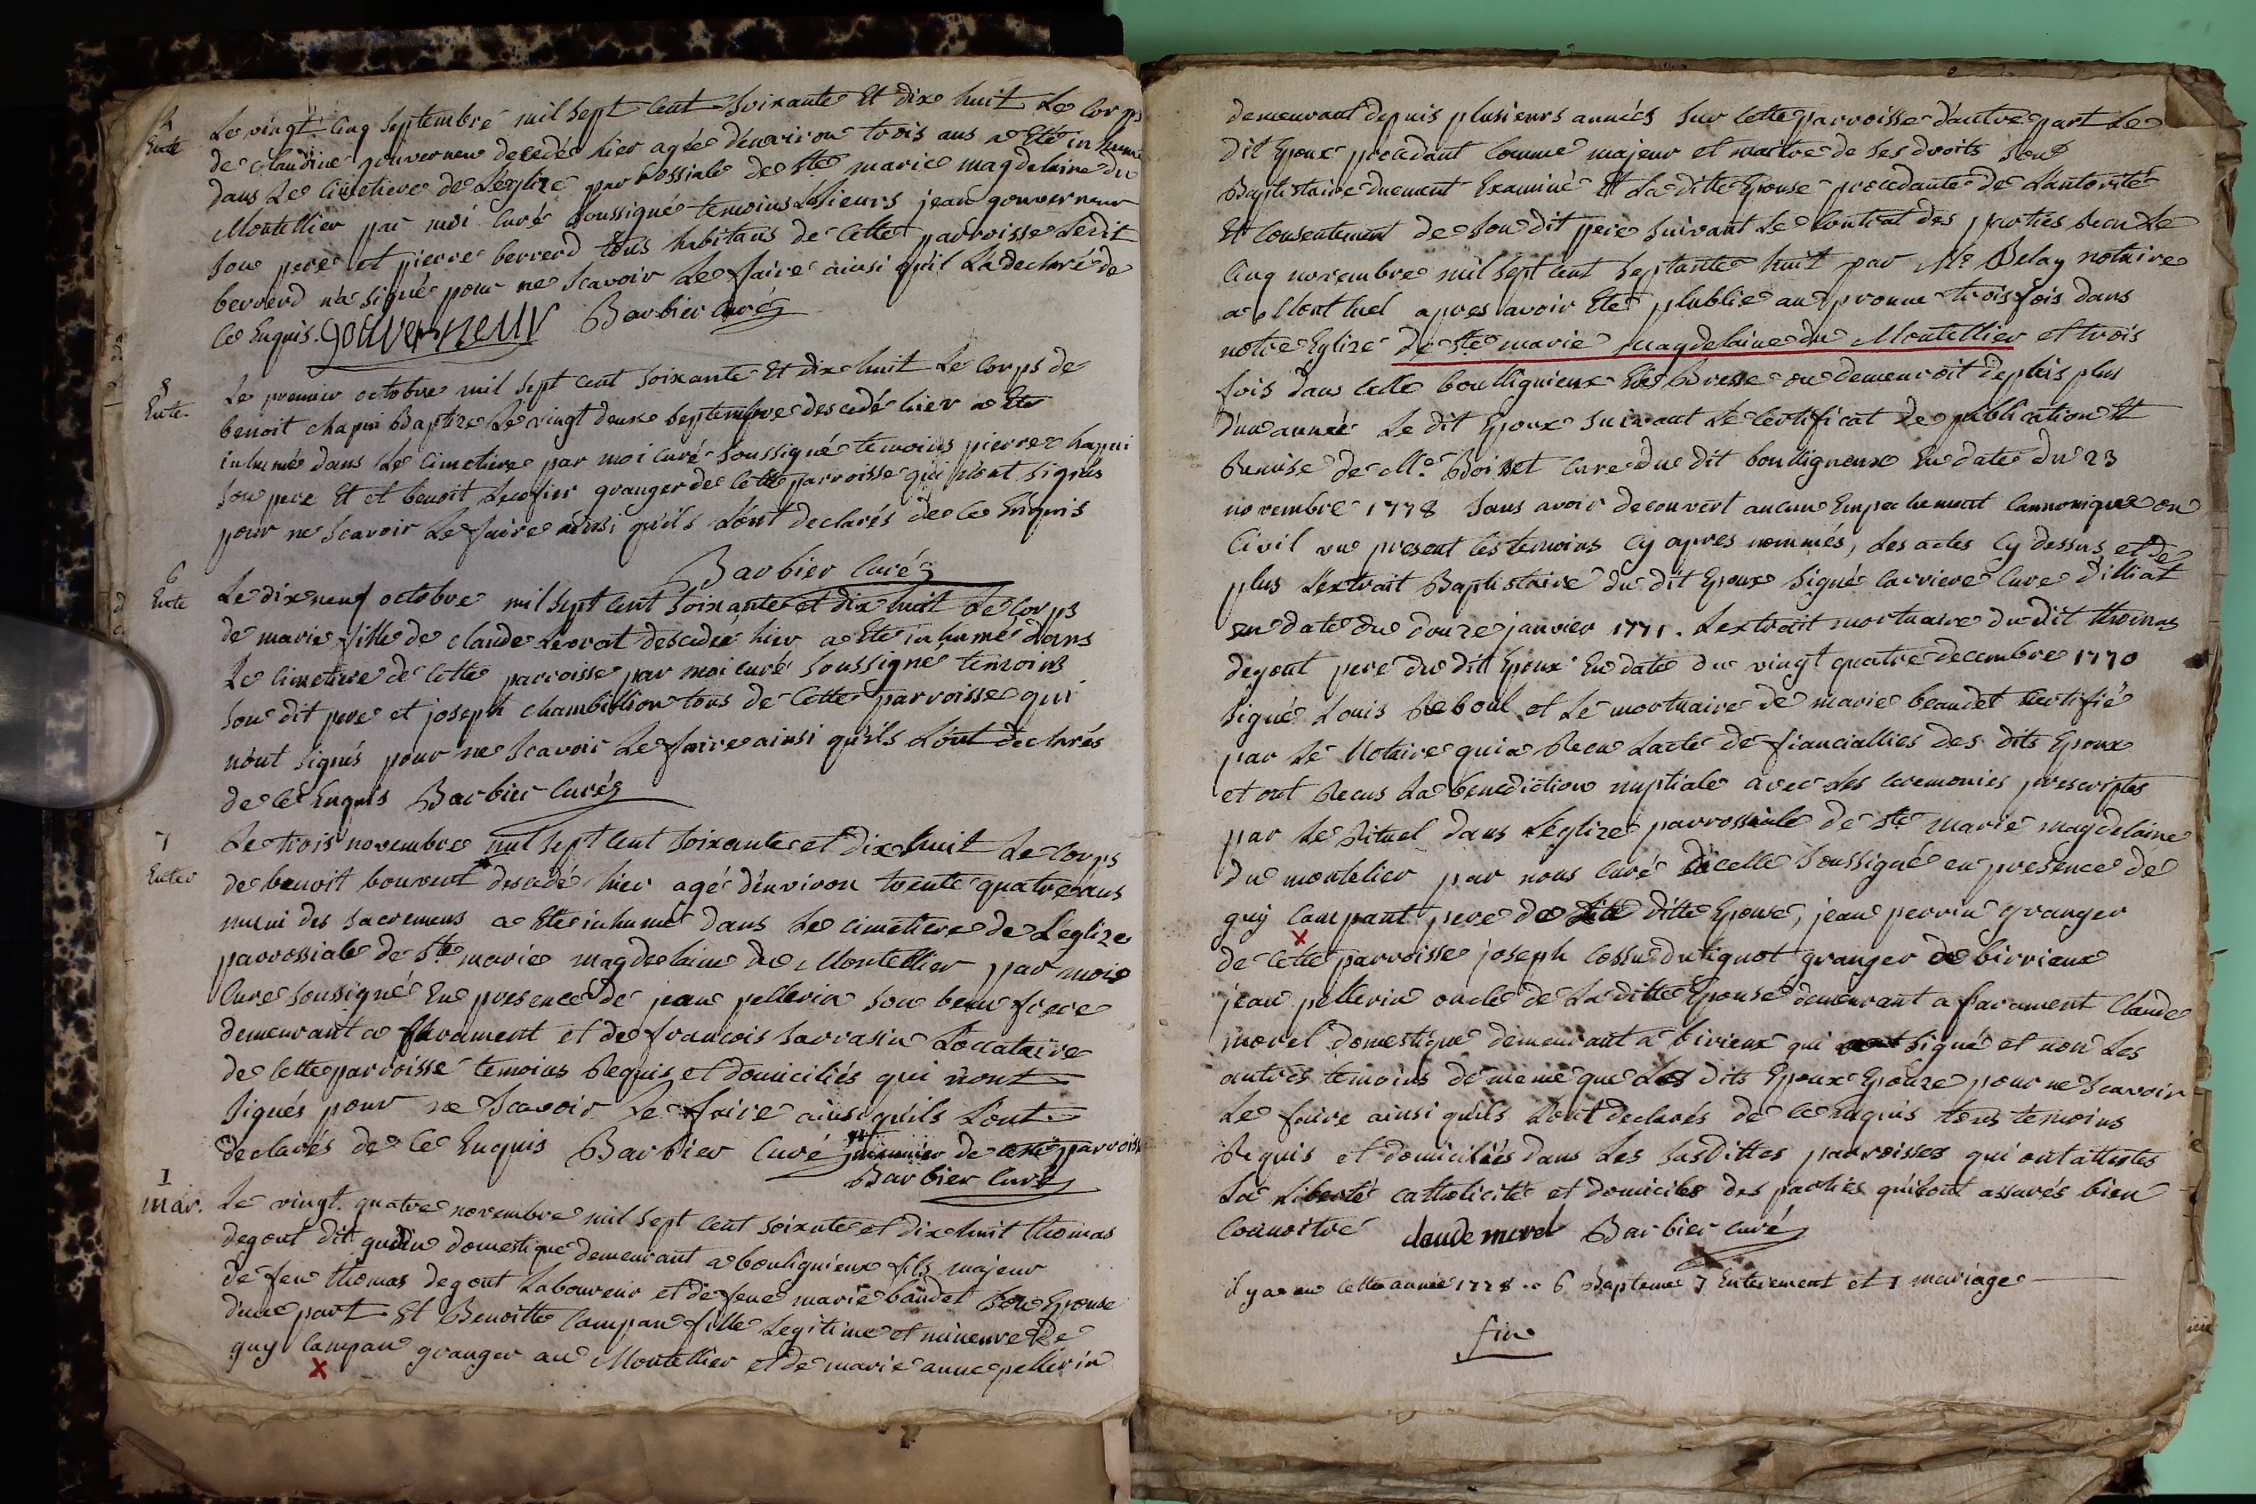 4
Ente
Le vingt cinq septembre mil sept cent soixante et dix huit Le corps
de Claudine gouverneur decedée hier agée d'environ trois ans a été inhumé
dans Le cimetiere de L'eglize parrossiale de ste marie magdelaine du
Montellier par moi curé soussigné temoins Les sieurs jean gouverneur
son pere et pierre berrerd tous habitans de cette parroisse Ledit
berrerd n'a signé pour ne scavoir Le faire ainsi qu'il La declaré de
ce Enquis. gouverneur Barbier curé
5
Ente
Le premier octobre mil sept cent soixante et dix huit Le corps de
benoit chapui Baptize Le vingt deux septembre descedé hier a ete
inhumé dans Le cimetiere par moi curé soussigné temoins pierre chapui
son pere Et et benoit granger de cette parroisse qui n'ont signés
pour ne scavoir Le faire ainsi qu'ils L'ont declarés de ce Enquis
Barbier curé
6
Ente
Le dix neuf octobre mil sept cent soixante et dix huit Le corps
de marie fille de claude Levrat descedée hier a ete inhumé dans
Le cimetiere de cette parroisse par moi curé soussigné temoins
son dit pere et joseph chambillion tous de cette parroisse qui
n'ont signés pour ne scavoir Le faire ainsi qu'ils L'ont declarés
de ce Enquis Barbier curé
7
Enter
Le trois novembre mil sept cent soixante et dix huit Le corps
de benoit bouvent descedé hier agé d'environ trente quatre ans
muni des sacremens a ete inhumé dans Le cimetiere de L'eglize
parrossiale de Ste marie magdelaine du Montellier par moi
Curé soussigné En presence de jean pellerin son beau frere
demeurant a farament et de francois sarrasin Loccataire
de cette parroisse temoins Requis et domiciliés qui n'ont
signés pour ne scavoir Le faire ainsi qu'ils L'ont
declarés de ce Enquis Barbier curé de parroisse
Barbier curé
1
mar.
Le vingt quatre novembre mil sept cent soixante et dix huit thomas
degout dit domestique demeurant a bouligneux fils majeur
de feu thomas degout Laboureur et de feue marie baudet son Epouse
d'une part Et Benoitte Campan fille Legitime et mineure de
guy Campan granger au Montellier et de marie anne pellerin
demeurant depuis plusieurs années sur cette parroisse d'autre part Le
dit Epoux procedant comme majeur et maitre de ses droits son
Baptistaire duement Examiné Et La ditte Epouse procedante de L'autorité
Et consentement de son dit pere suivant Le contrat des parties Recu Le
cinq novembre mil sept cent septante huit par Me Belay notaire
a Montluel apres avoir eté plublie au prone trois fois dans
notre Eglize de Ste marie magdelaine du Montellier et trois
fois dans celle bouligneux En Bresse ou demeuroit depuis plus
d'une année Le dit Epoux suivant Le certificat de publication Et
Remise de Mr. Boisset curé du dit bouligneux En date du 23
novembre 1778 sans avoir decouvert aucun Empechement cannonique ou
Civil vu present les temoins cy apres nommés, Les actes cy dessus et de
plus L'extrait Baptistaire du dit Epoux signé carriere Curé d'illiat
en date du douze janvier 1771. L'extrait mortuaire du dit thomas
degout pere du dit Epoux En date du vingt quatre decembre 1770
signé Louis Reboul et Le mortuaire de marie beaudet certifié
par Le Notaire qui a Recu L'acte de fianciallies des dits Epoux
et ont Recus La benediction nuptiale avec Les ceremonies prescriptes
par Le Rituel dans L'eglize parrossiale de Ste marie magdelaine
du montelier par nous curé d'icelle soussigné en presence de
guy Campant pere de ditte Epouse, jean perrin granger
de cette parroisse joseph cossu granger de birrieux
jean pellerin oncle de La ditte Epouse demeurant a farament Claude
morel domestique demeurant a birieux qui signé et non Les
autres temoins de meme que Les dits Epoux Epouze pour ne scavoir
Le faire ainsi qu'ils L'ont declarés de ce Enquis tous temoins
Requis et domiciliés dans Les susdittes parroisses qui ont attestes
La Liberté catholicité et domicile des parties qu'ils ont assurés bien
connoitre claude morel Barbier curé
il y a eu cette annee 1778 .. 6 Bapteme 7 Enterement et 1 mariage
fin